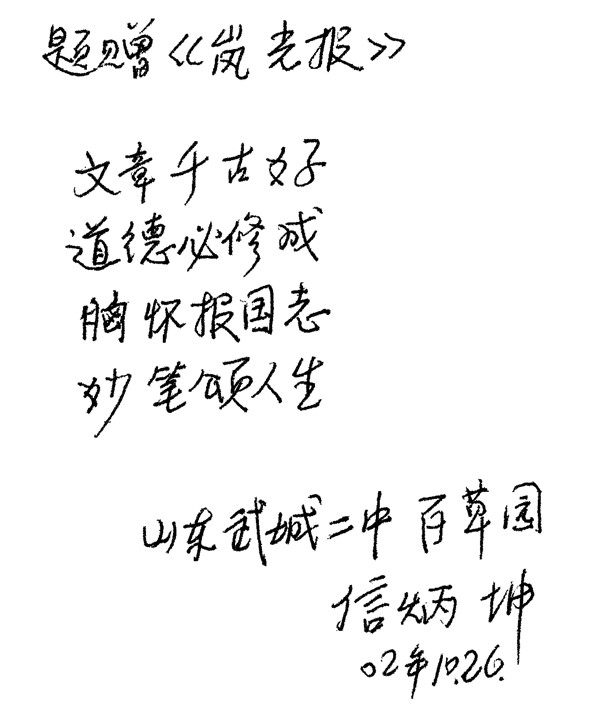 题赠《岚光报》
文章千古好
道德必修成
胸怀报国志
妙笔颂人生
山东武城二中 百草园
信炳坤
02年10.26.